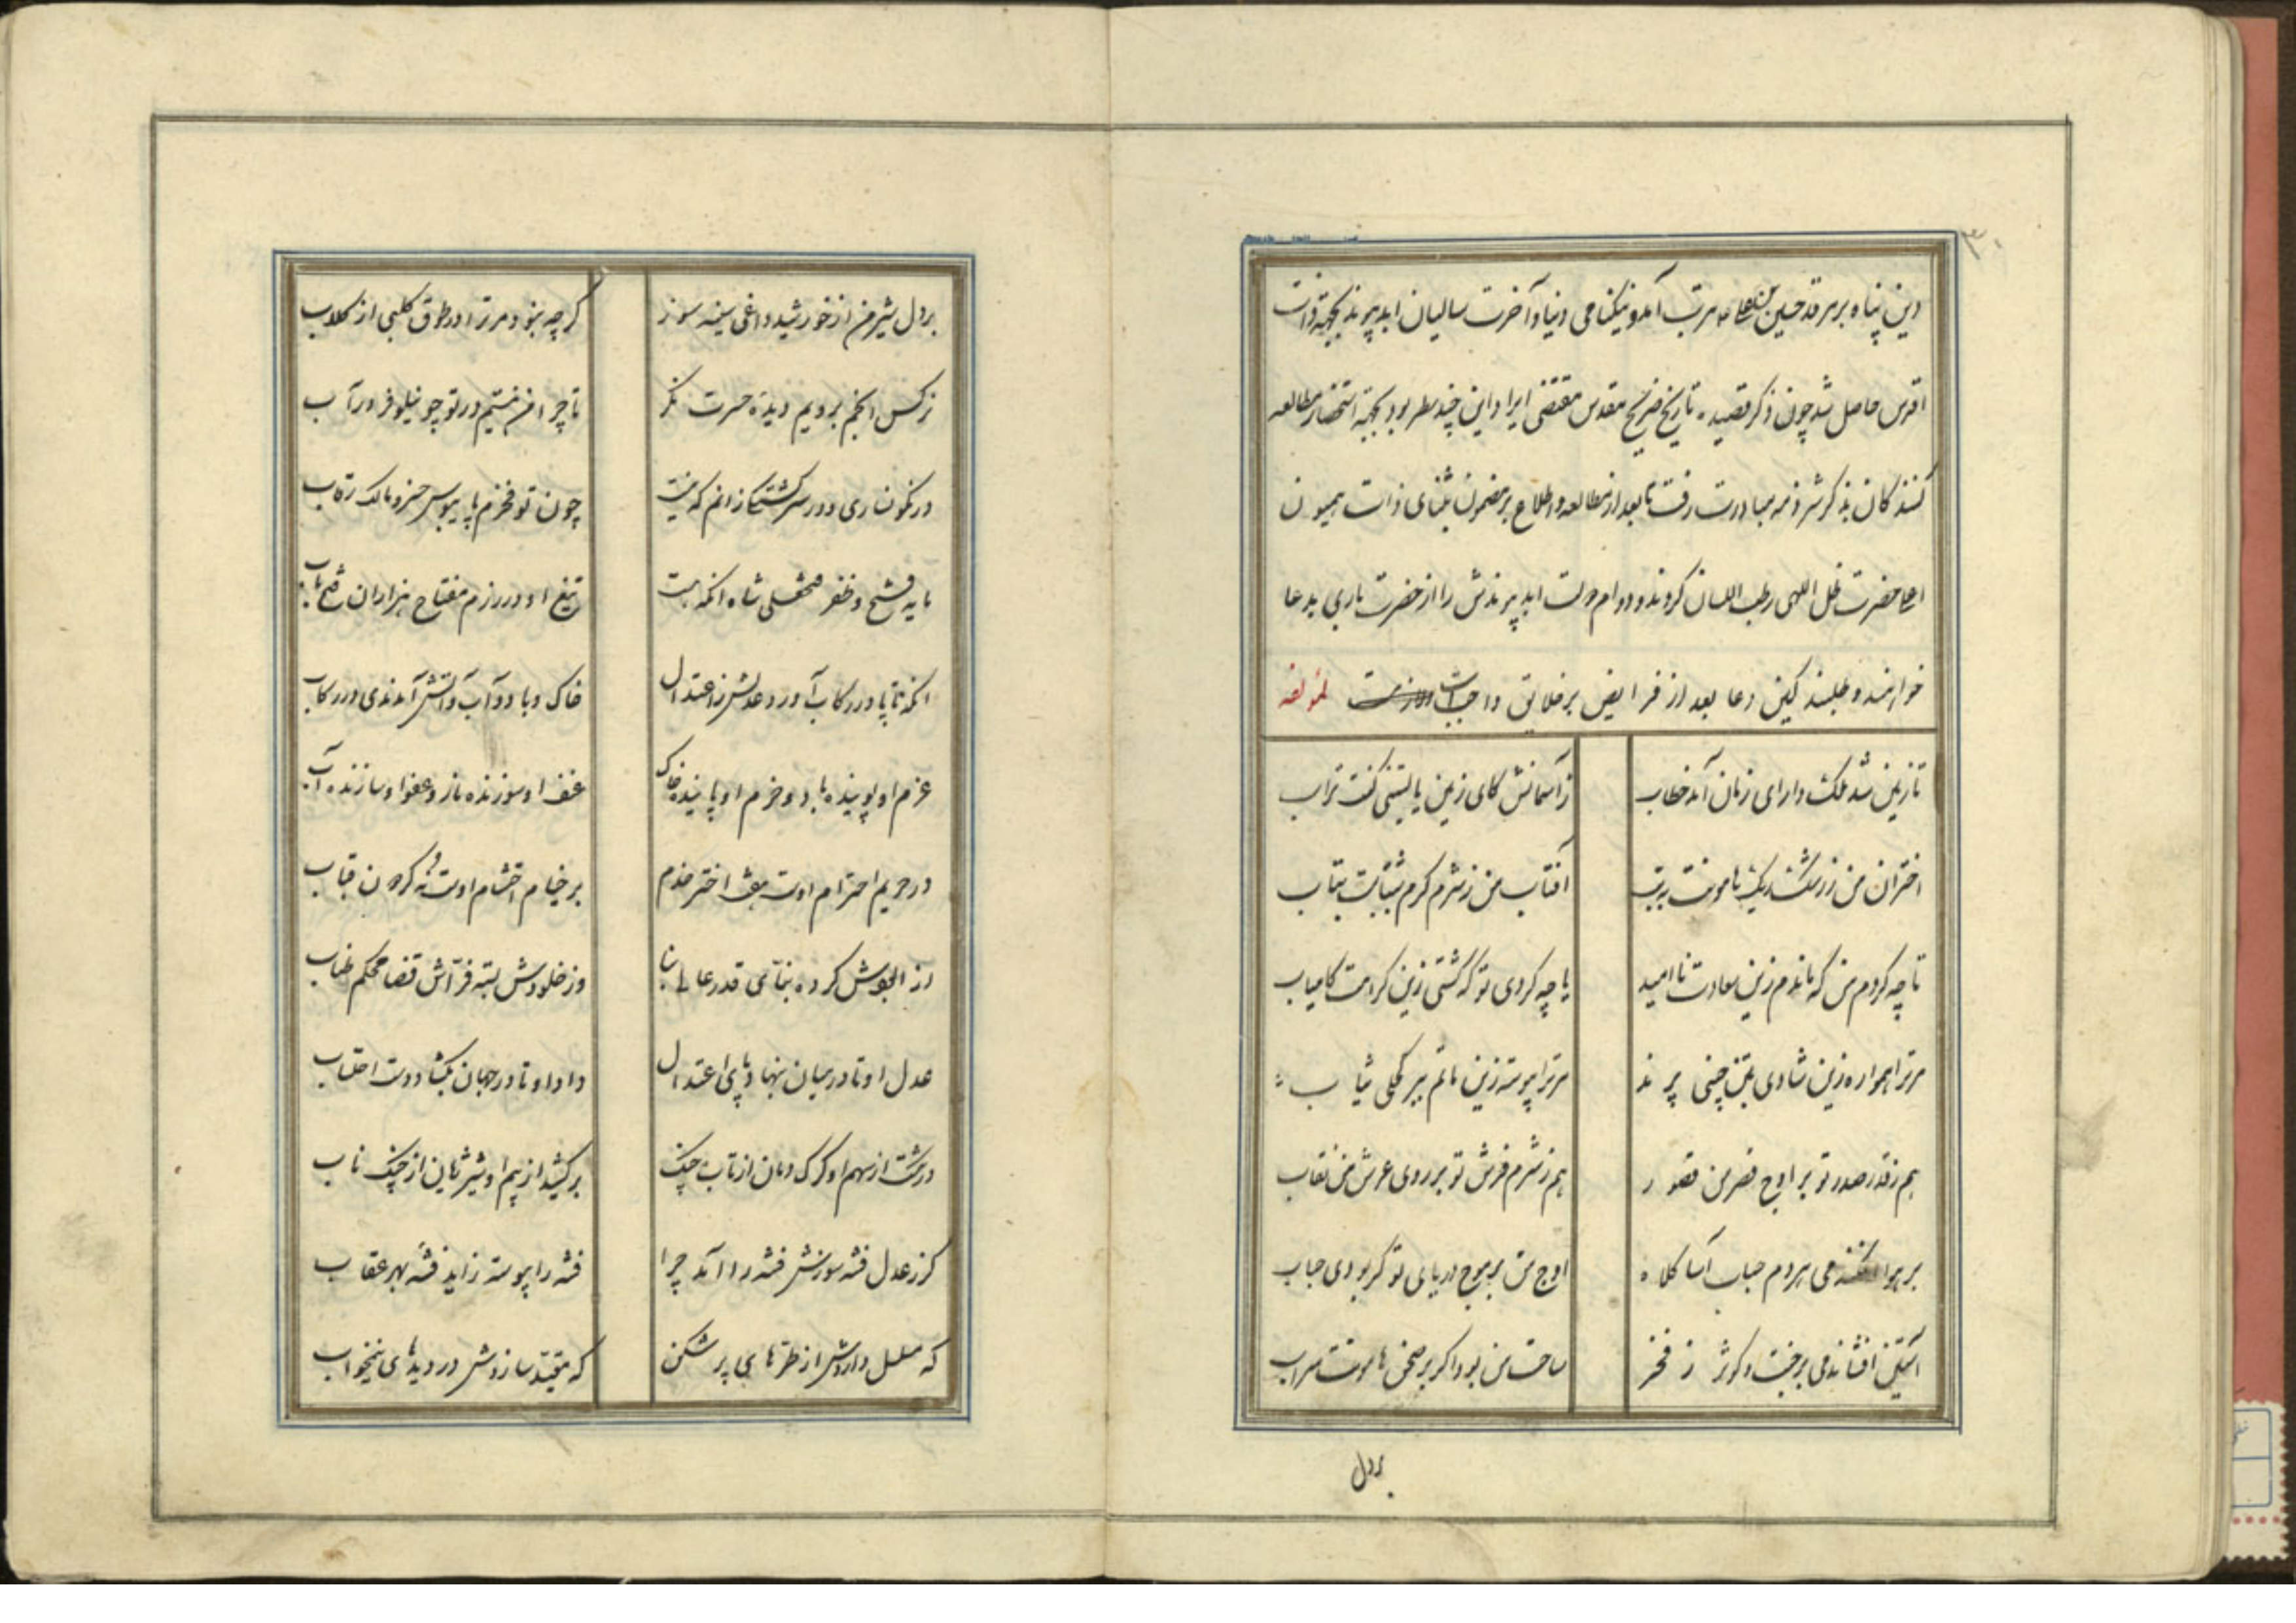 ۳۰
دین پناه بر مرقد حسین بن علی مرتب آمد و نیکنامی دنیا و آخرت سالیان ابد پیوند بجهة ذات
اقدس حاصل شد چون ذکر قصیده تاریخ ضریح مقدس مقتضی ایراد این چند سطر بود بجهة استحضار مطالعه
کنندکان بذکر شرذمه مبادرت رفت تا بعد از مطالعه و اطلاع بر مضمون بثنای ذات همیون
اعلی حضرت ظل اللهی رطب اللسان کردند و دوام دولت ابد پیوندش را از حضرت باری بدعا
خواهند و طلبند کین دعا بعد از فرایض بر خلایق واجب است لمؤلفه
تا زمین شد ملک دارای زمان آمد خطاب
ز آسمانش کای زمین یا لیتنی کنت تراب
اختران من ز رشک ریک هامونت بتب
آفتاب من ز شرم کرم شبتابت بتاب
تا چه کردم من که ماندم زین سعادت ناامید
یا چه کردی تو که گشتی زین کرامت کامیاب
مر ترا همواره زین شادی بتن چینی پرند
مر مرا پیوسته زین ماتم ببر کحلی ثیاب
هم ز قدر صدر تو بر اوج قصر من قصور
هم ز شرم فرش تو بر روی عرش من نقاب
بر هوا افکندمی هر دم حباب آسا کلاه
اوج من بر موج دریای تو گر بودی حباب
آستین افشاندمی بر جنت و کوثر ز فخر
ساحت من بود اکر بر صحن هامونت سراب
بر دل
بر دل شیر من از خورشید داغی سینه سوز
کرچه نبود مر ترا در طوق کلبی از کلاب
نرکس انجم برویم دیده حسرت نکر
تا چرا من نیستم در تو چو نیلوفر در آب
در نکونساری و در سرکشتکی زانم که نیست
چون تو فخرم پایبوس خسرو مالک رقاب
مایه فتح و ظفر فتحعلی شاه انکه هست
تیغ او در رزم مفتاح هزاران فتح باب
انکه تا پا در رکاب آورد عدلش ز اعتدال
خاک و باد و آب و آتش آمدندی در رکاب
عزم او پوینده باد و حزم او پاینده خاک
عنف او سوزنده نار و عفو او سازنده آب
در حریم احترام اوست هفت اختر خدم
بر خیام احتشام اوست نه کردون قباب
از الجوش کرده بنای قدر عالی بنا
وز خلودش بسته فراش قضا محکم طناب
عدل او تا در میان بنهاد پای اعتدال
داد او تا در جهان بکشاد دست احتساب
درشت از سهم او کرک دمان از تاب چنک
برکشید از بیم او شیر ژیان از چنک ناب
کر ز عدل فتنه سوزش فتنه را آمد چرا
فتنه را پیوسته زاید فتنه بهر عقاب
که مسلسل داردش از طره های پر شکن
که مقید سازدش در دیدهای نیمخواب